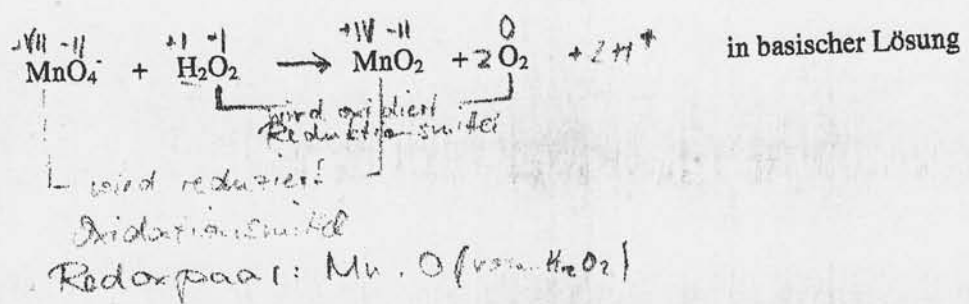 +VII -II +I -I +IV -II 0
MnO₄⁻ + H₂O₂ → MnO₂ + 2 O₂ + 2 H⁺ in basischer Lösung
wird oxidiert
Reduktionsmittel
wird reduziert
Oxidationsmittel
Redoxpaar: Mn, O (von H₂O₂)